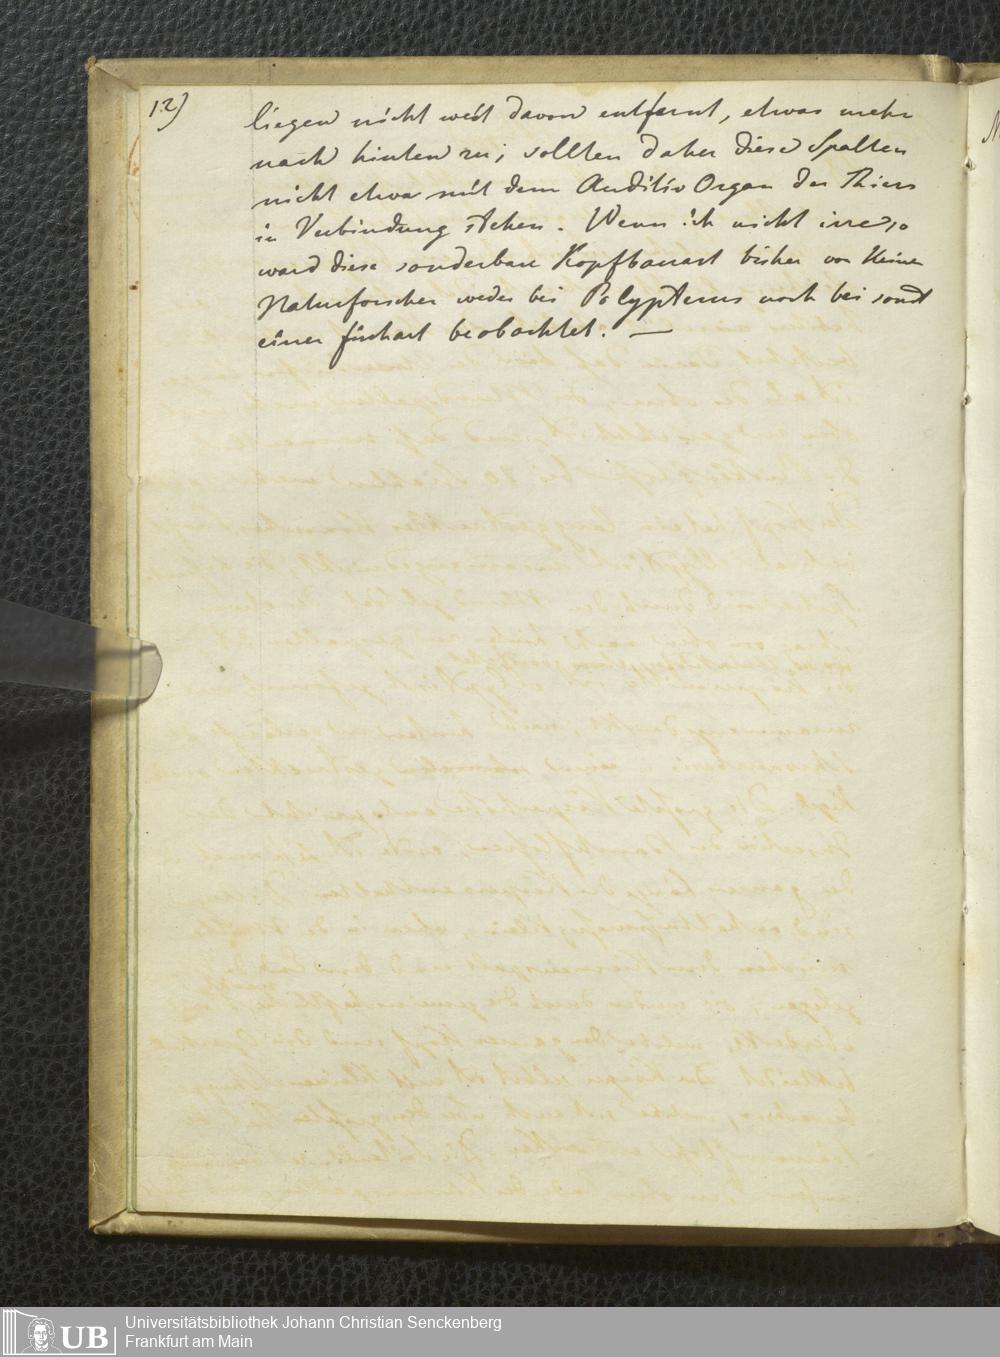 12)
liegen nicht weit davon entfernt, etwas mehr
nach hinten zu; sollten daher diese Spalten
nicht etwa mit dem Auditiv Organ des Thiers
in Verbindung stehen. Wenn ich nicht irre so
ward diese sonderbare Kopfbauart bisher von keinem
Naturforscher weder bei Polypterus noch bei sonst
einer fischart beobachtet. —
UB
Universitätsbibliothek Johann Christian Senckenberg
Frankfurt am Main